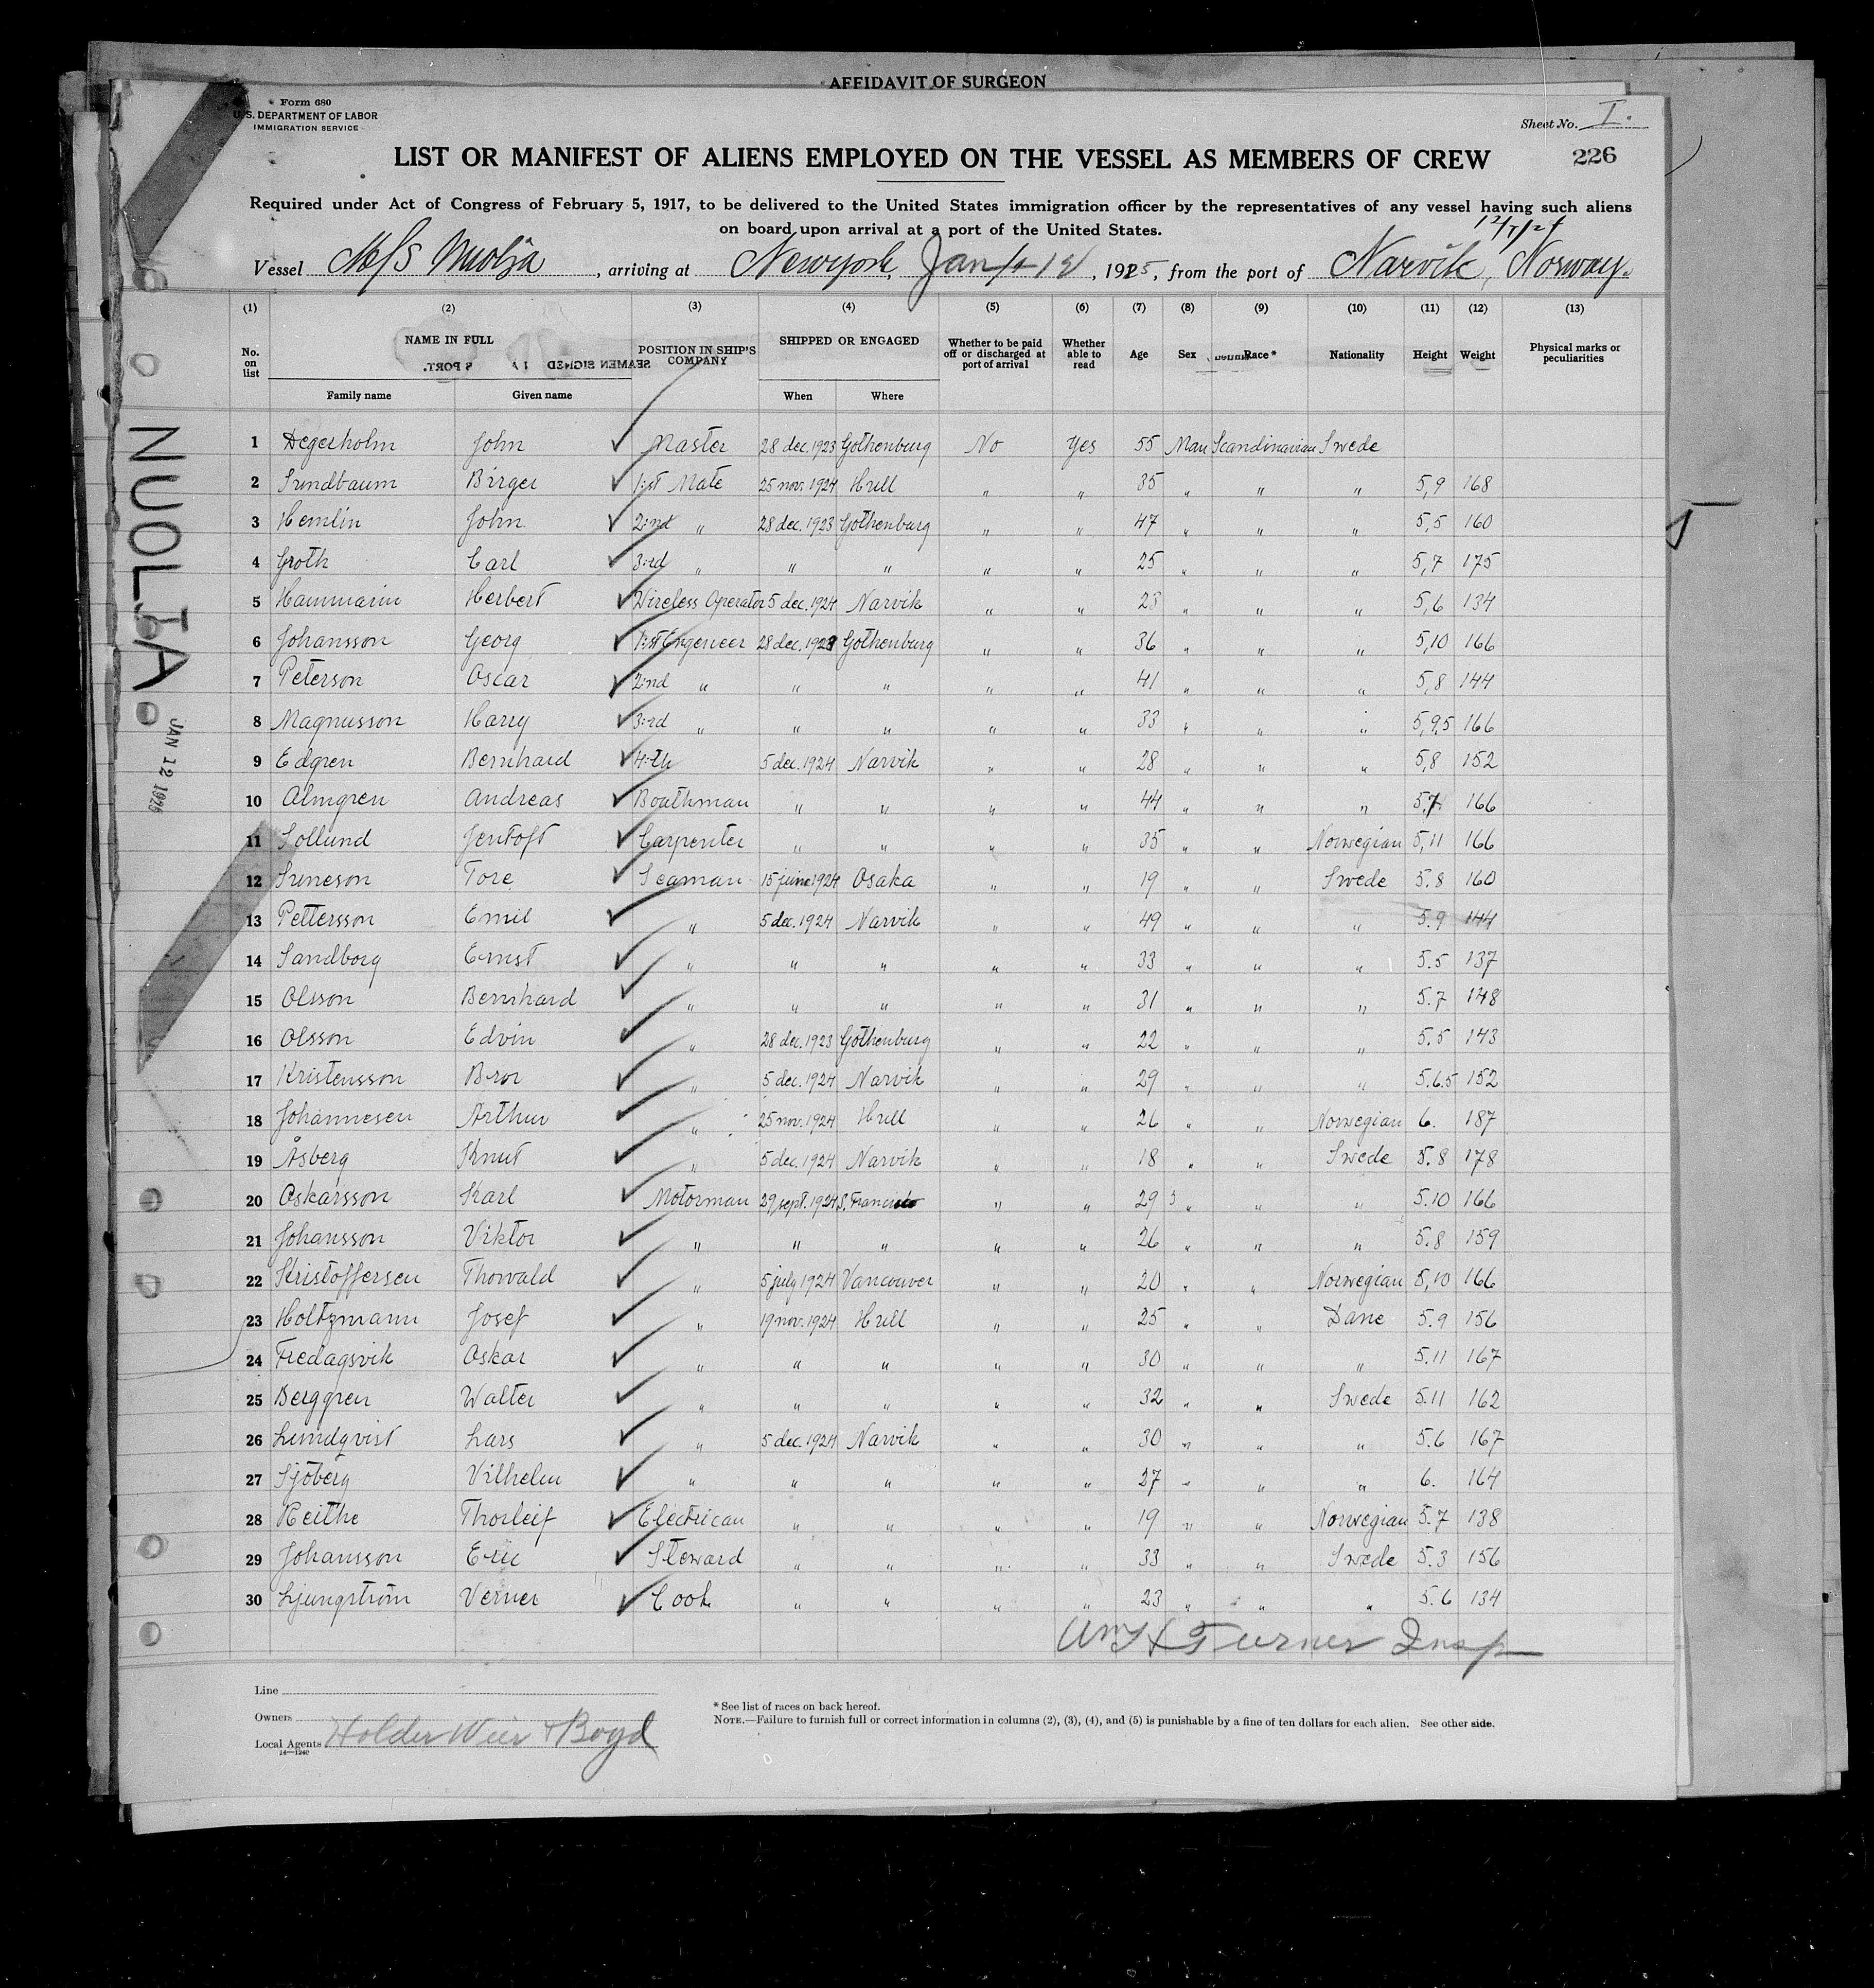 AFFIDAVIT OF SURGEON
Form 680
U.S. DEPARTMENT OF LABOR
IMMIGRATION SERVICE
Sheet No. I.
LIST OR MANIFEST OF ALIENS EMPLOYED ON THE VESSEL AS MEMBERS OF CREW
226
Required under Act of Congress of February 5, 1917, to be delivered to the United States immigration officer by the representatives of any vessel having such aliens
on board upon arrival at a port of the United States.
12/7/24
Vessel M/S Nuolja, arriving at Newyork, Jan 12, 1925, from the port of Narvik, Norway.
(1) (2) (3) (4) (5) (6) (7) (8) (9) (10) (11) (12) (13)
No. on list NAME IN FULL POSITION IN SHIP'S COMPANY SHIPPED OR ENGAGED Whether to be paid off or discharged at port of arrival Whether able to read Age Sex Race* Nationality Height Weight Physical marks or peculiarities
SEAMEN SIGNED PORT.
Family name Given name When Where
1 Degerholm John Master 28 dec. 1923 Gothenburg No Yes 55 Man Scandinavian Swede
2 Sundbaum Birger 1:st Mate 25 nov. 1924 Hull " " 35 " " " 5,9 168
3 Hemlin John 2:nd " 28 dec. 1923 Gothenburg " " 47 " " " 5,5 160
4 Groth Carl 3:rd " " " " " 25 " " " 5,7 175
5 Hammarin Herbert Wireless Operator 5 dec. 1924 Narvik " " 23 " " " 5,6 134
6 Johansson Georg 1:st Engeneer 28 dec. 1923 Gothenburg " " 36 " " " 5,10 166
7 Peterson Oscar 2:nd " " " " " 41 " " " 5,8 144
8 Magnusson Harry 3:rd " " " " " 33 " " " 5,9,5 166
9 Edgren Bernhard 4:th 5 dec. 1924 Narvik " " 28 " " " 5,8 152
10 Almgren Andreas Boathman " " " " 44 " " " 5,7 166
11 Sollund Jentoft Carpenter " " " " 35 " " Norwegian 5,11 166
12 Suneson Tore Seaman 15 june 1924 Osaka " " 19 " " Swede 5.8 160
13 Pettersson Emil " 5 dec. 1924 Narvik " " 49 " " " 5.9 144
14 Sandborg Ernst " " " " " 33 " " " 5.5 137
15 Olsson Bernhard " " " " " 31 " " " 5.7 148
16 Olsson Edvin " 28 dec. 1923 Gothenburg " " 22 " " " 5.5 143
17 Kristensson Bror " 5 dec. 1924 Narvik " " 29 " " " 5.6.5 152
18 Johannesen Arthur " 25 nov. 1924 Hull " " 26 " " Norwegian 6. 187
19 Åsberg Knut " 5 dec. 1924 Narvik " " 18 " " Swede 5.8 178
20 Oskarsson Karl Motorman 29 sept. 1924 S. Francisco " " 29 " " " 5.10 166
21 Johansson Viktor " " " " " 26 " " " 5.8 159
22 Kristoffersen Thorvald " 5 july 1924 Vancouver " " 20 " " Norwegian 5,10 166
23 Holtzmann Josef " 19 nov. 1924 Hull " " 25 " " Dane 5.9 156
24 Fredagsvik Oskar " " " " " 30 " " " 5.11 167
25 Berggren Walter " " " " " 32 " " Swede 5.11 162
26 Lundqvist Lars " 5 dec. 1924 Narvik " " 30 " " " 5.6 167
27 Sjöberg Vilhelm " " " " " 27 " " " 6. 164
28 Reithe Thorleif Electrican " " " " 19 " " Norwegian 5.7 138
29 Johansson Eric Steward " " " " 33 " " Swede 5.3 156
30 Ljungström Verner Cook " " " " 23 " " " 5.6 134
Turner Insp
Line
Owners
Local Agents Holder Weir & Boyd
14—1240
* See list of races on back hereof.
NOTE.—Failure to furnish full or correct information in columns (2), (3), (4), and (5) is punishable by a fine of ten dollars for each alien. See other side.
NUOLJA
JAN 12 1925